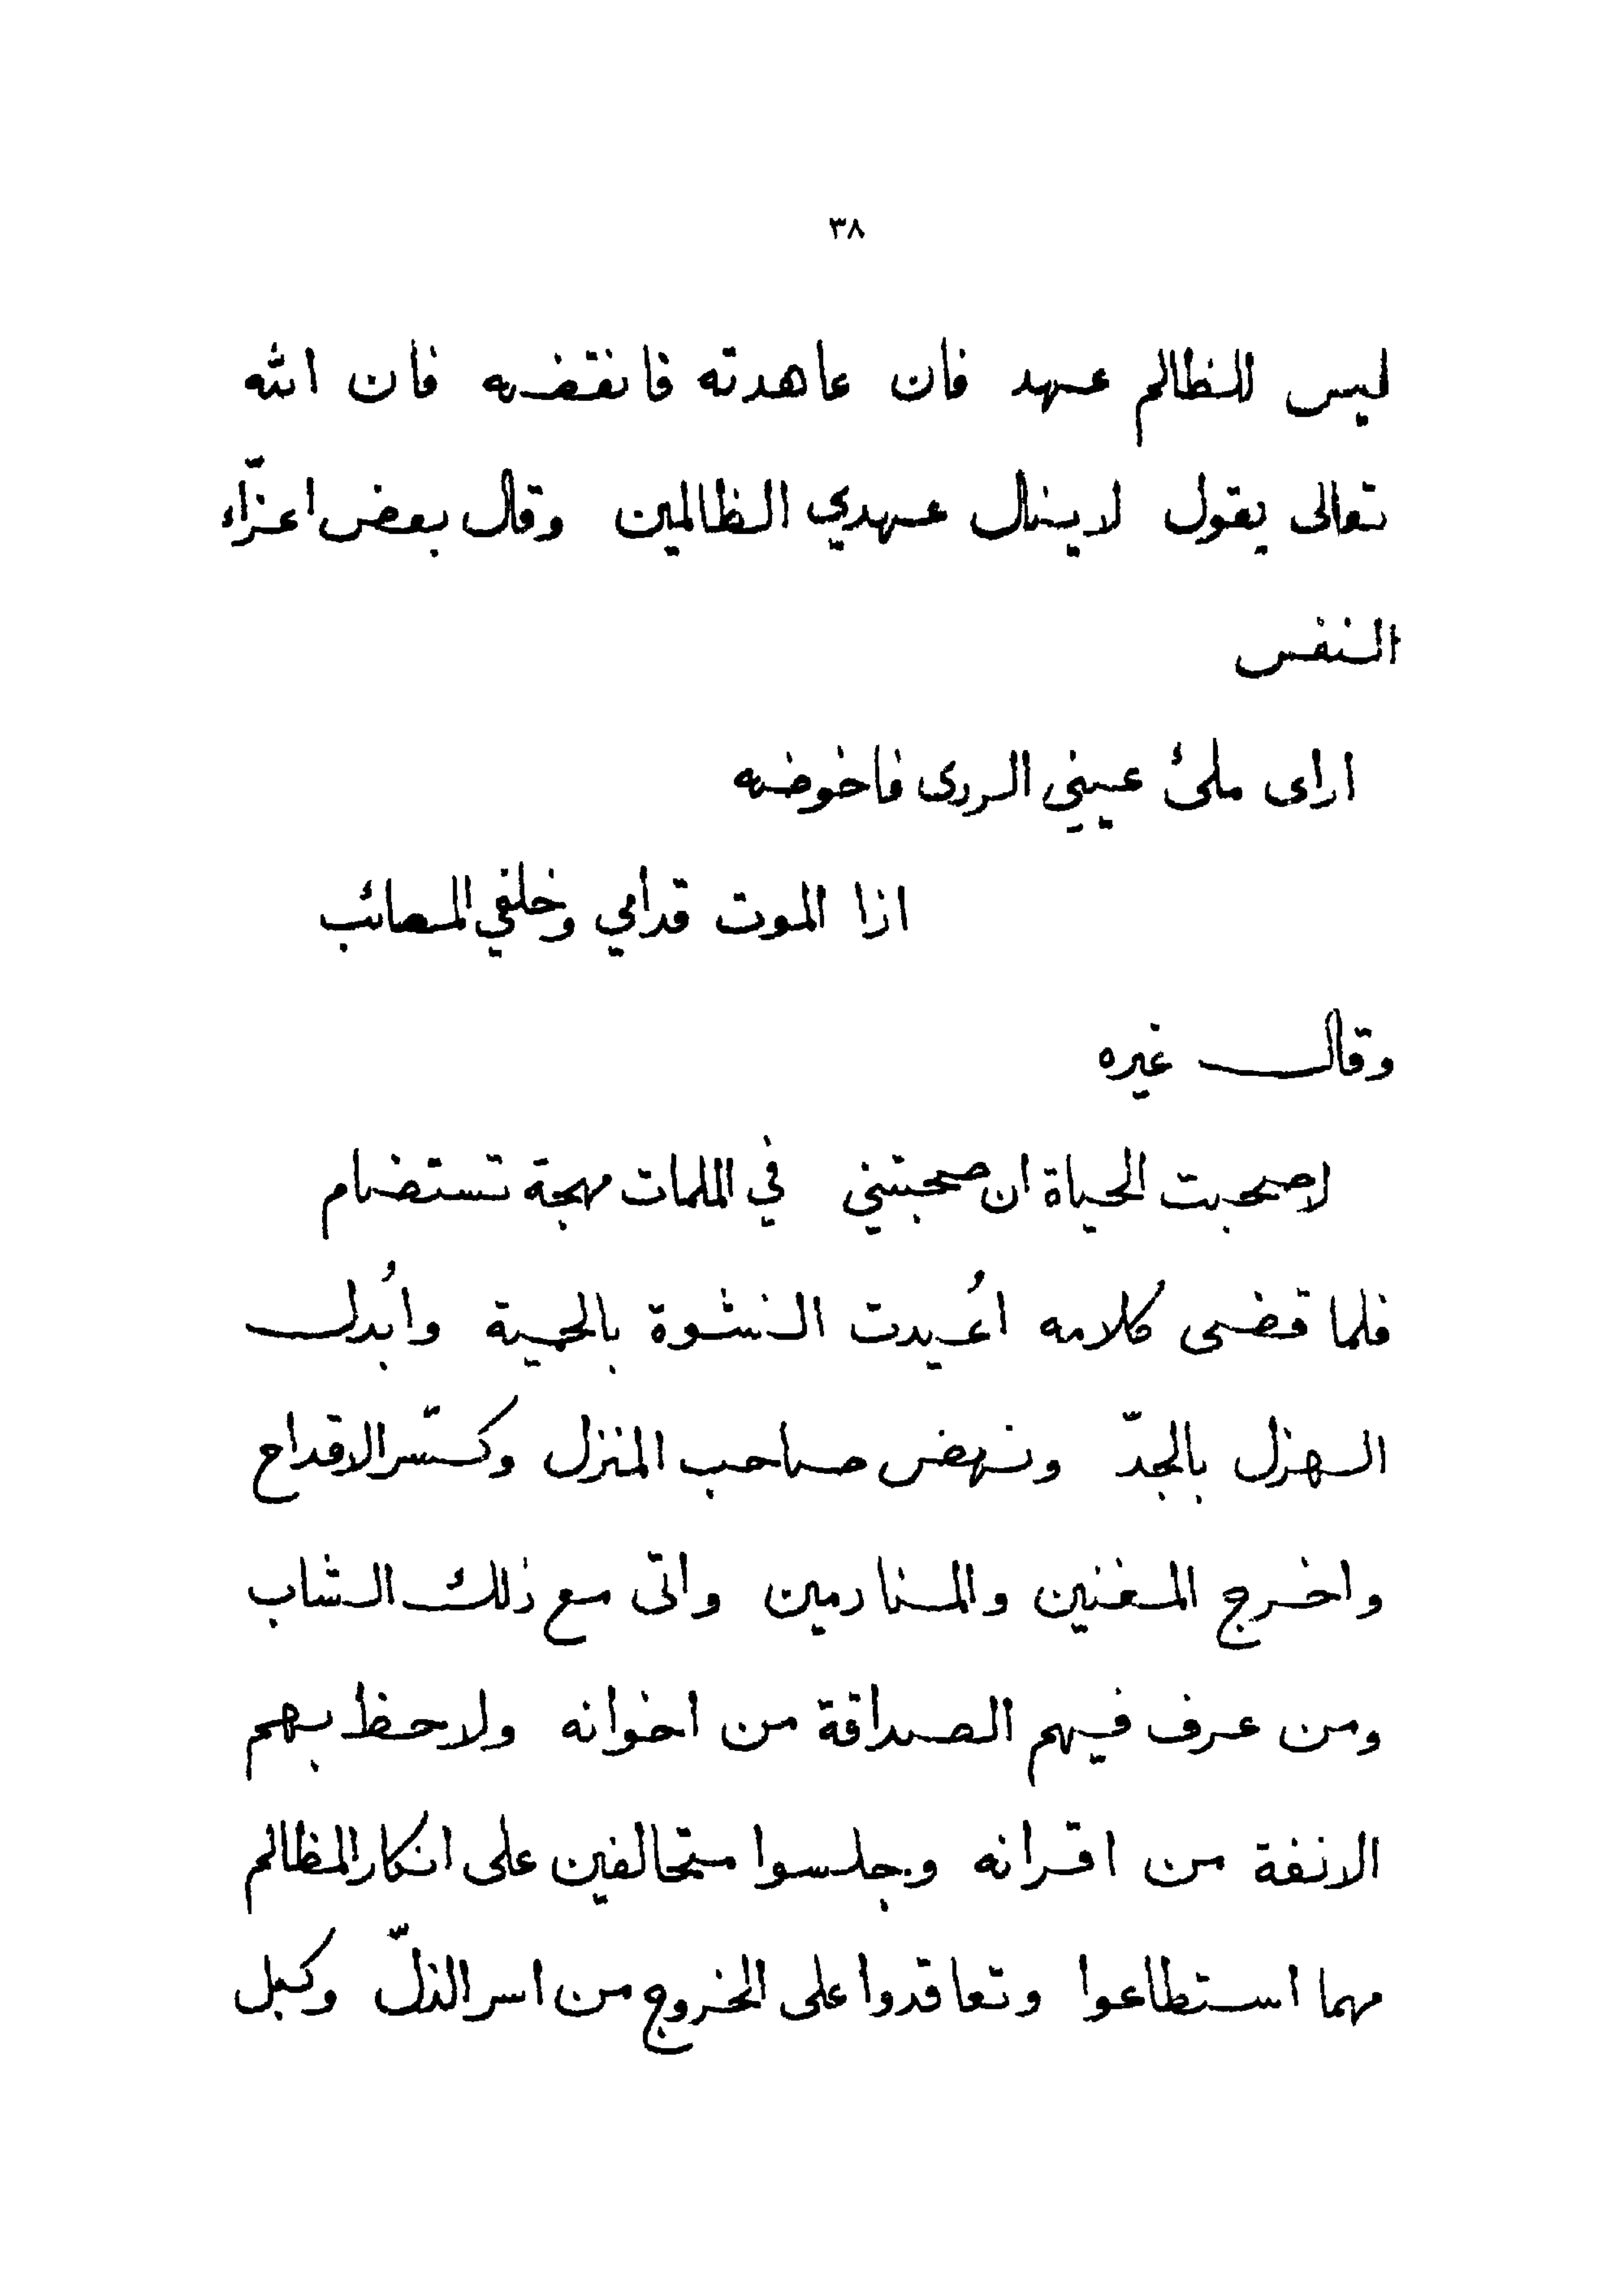 ٣٨
ليس للظالم عهد فان عاهدته فانقضه فان الله
تعالى يقول لا ينال عهدي الظالمين وقال بعض اعزّاء
النفس
اراى ملئ عيني الردى فاخوضه
اذا الموت قدامي وخلفي المصائب
وقال غيره
لا صحبت الحياة ان صحبتني في الملمات مهجة تستضام
فلما قضى كلامه اعُيدت النشوة بالحمية وابُدل
الهزل بالجدّ ونهض صاحب المنزل وكسّر الاقداح
واخرج المغنين والمنادمين واتى مع ذلك الشاب
ومن عرف فيهم الصداقة من اخوانه ولاحظ بهم
الانفة من اقرانه وجلسوا متحالفين على انكار المظالم
مهما استطاعوا وتعاقدوا على الخروج من اسر الذلّ وكبل